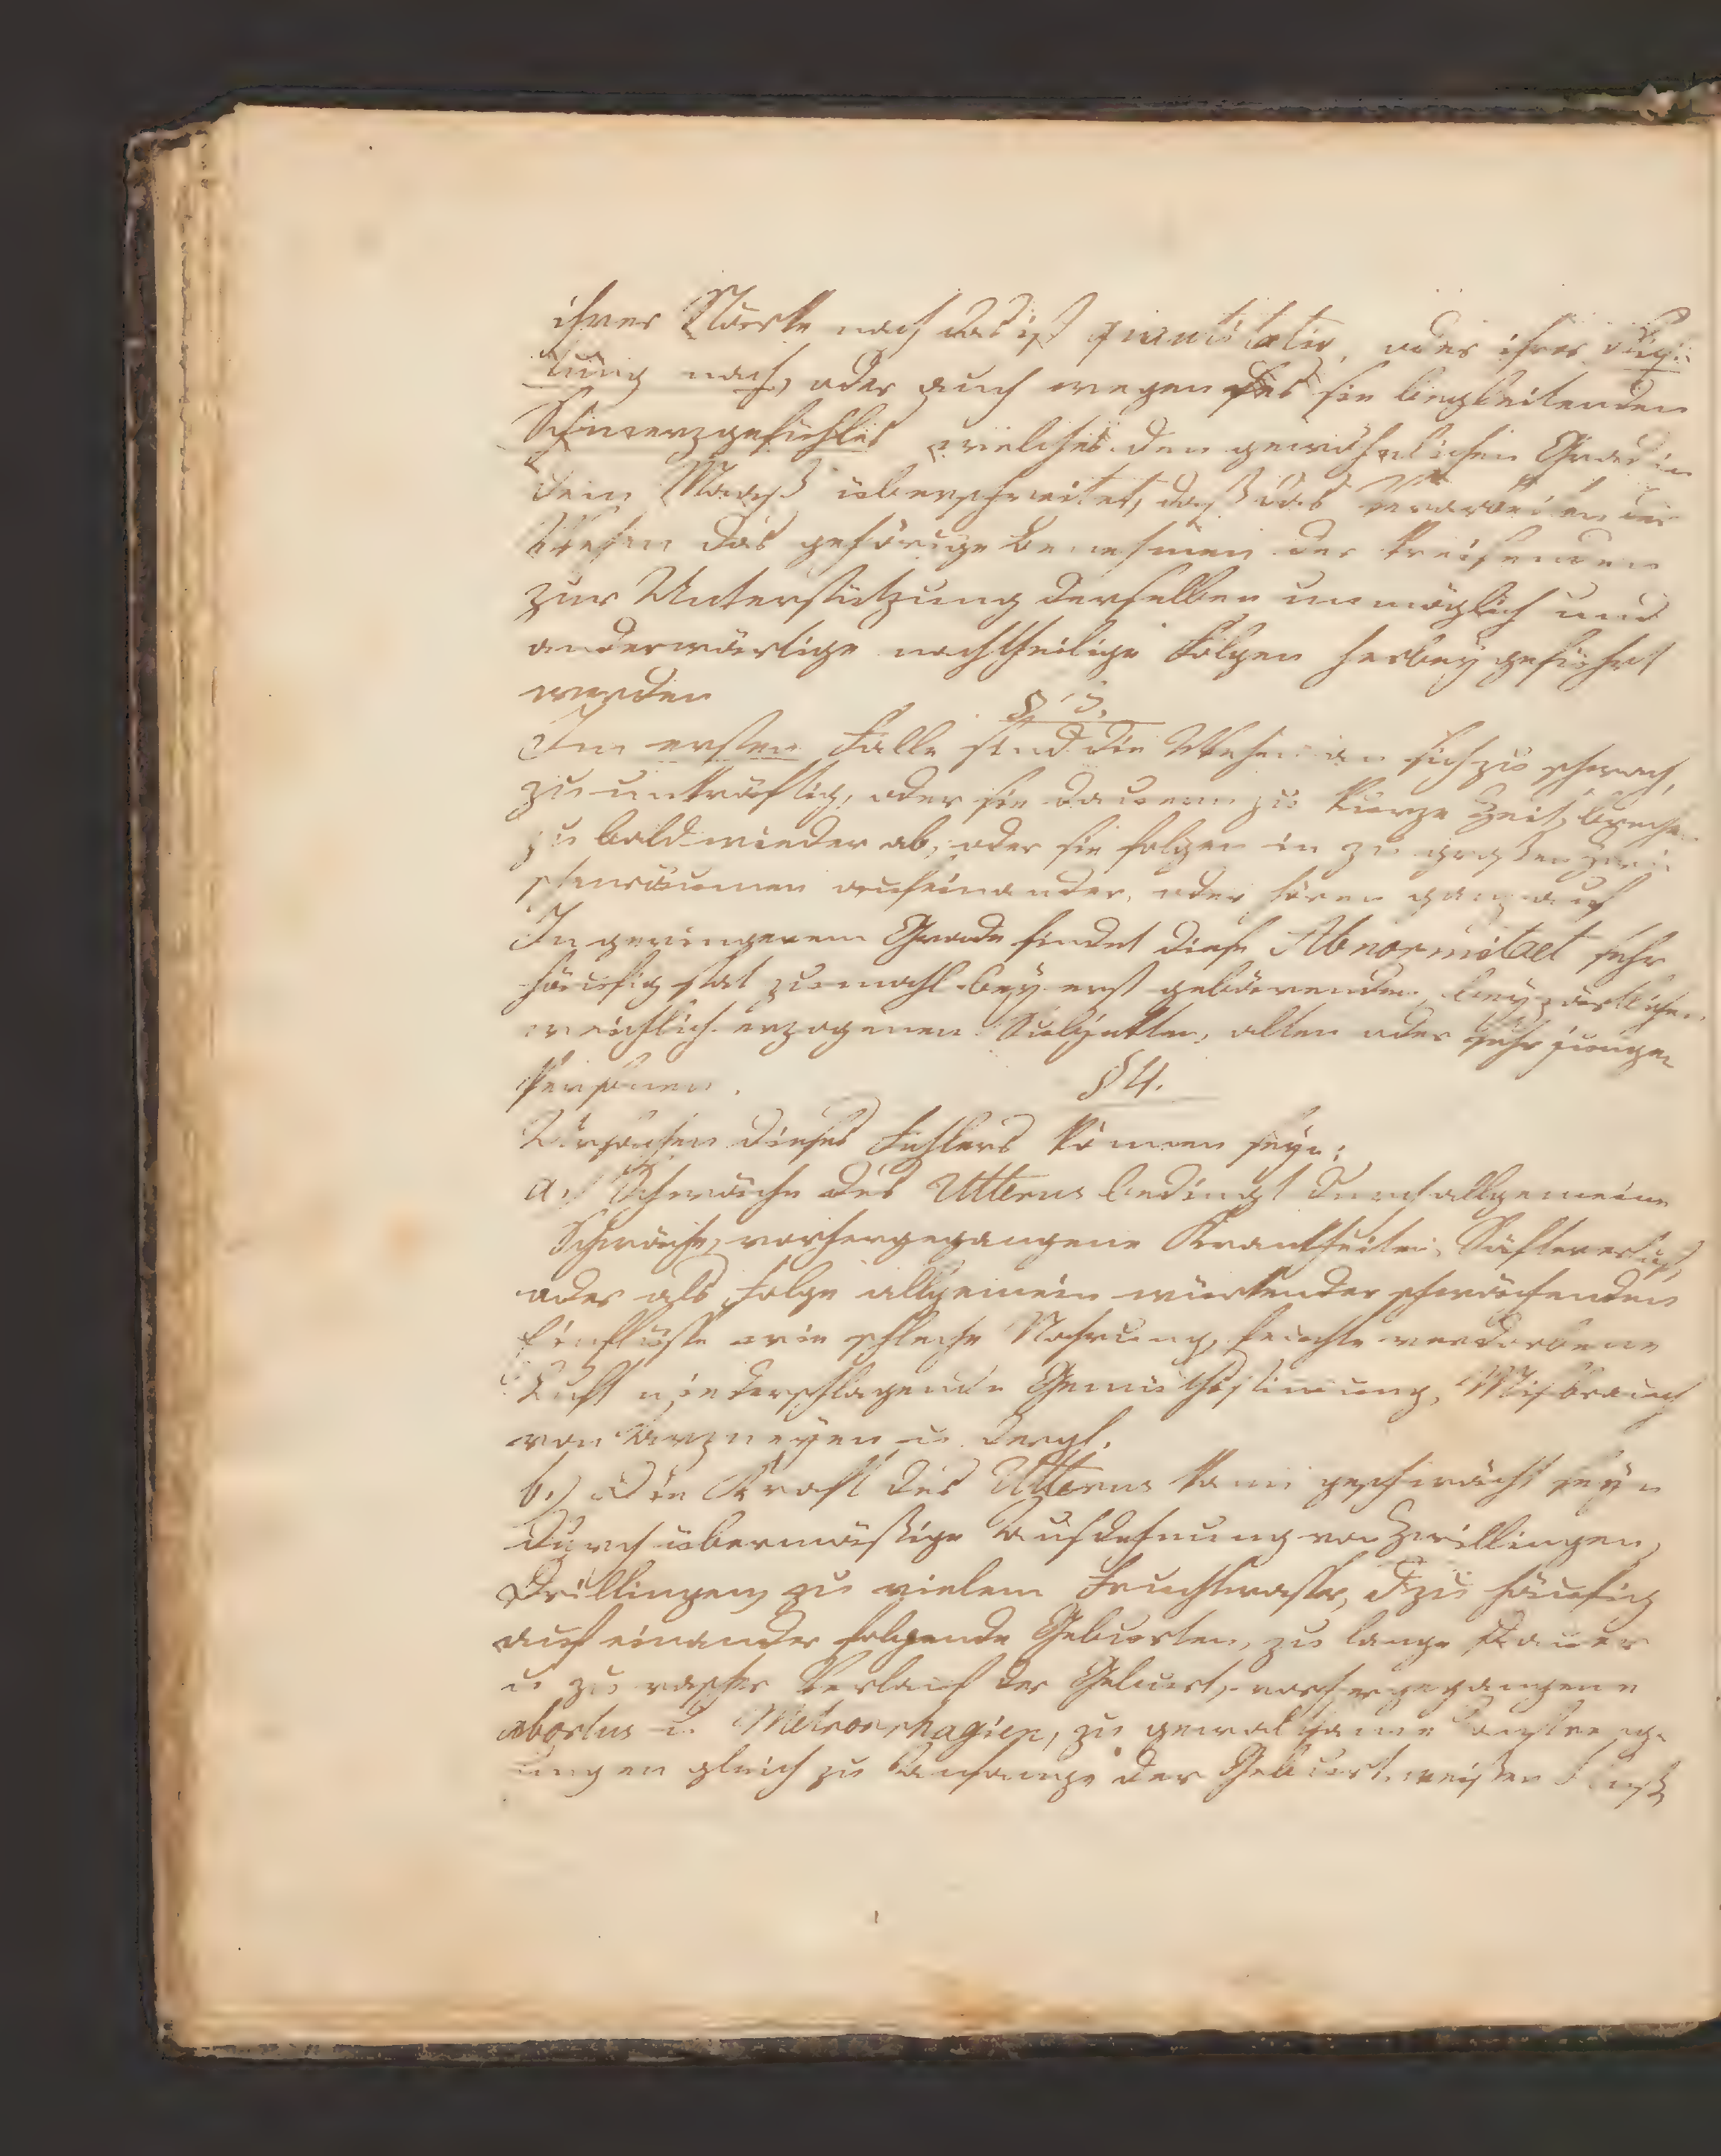 ihrer Stärke nach das ist quantitativ, oder ihrer Rich-
tung nach, oder auch wegen des sie begleitenden
Schmerzgefühles welches den gewöhnlichen Grad in
dem Maaß überschreitet, daß das
Wehen das gehörige benehmen der Kreisenden
zur Unterstützung derselben unmöglich und
anderwärtige nachtheilige Folgen herbey geführt
werden
§ 3.
Im ersten Falle sind die Wehen an sich zu schwach,
zu unkräftig, oder sie dauern zu kurze Zeit, brechen
zu bald wieder ab, oder sie folgen in zu großen Zwi
schenräumen aufeinander, oder hören ganz auf
In geringerem Grade findet diese Abnormitaet sehr
häufig stat zumahl bey erst gebärenden, bey zärtlichen
weichlich erzogenen Subjekten, alten oder sehr jungen
Personen.
§ 4.
Ursachen dieses Fehlers können seyn:
a.) Schwäche des Utterus bedingt durch allgemeine
Schwäche, vorhergegangene Krankheiten, Säfteverlust,
oder als Folge allgemein würkender schwächenden
Einflüsse wie schlechte Nahrung, feuchte verdorbene
Luft niederschlagende Gemüthsstimung, Misbrauch
von Arzneyen u. dergl.
b.) Die Kraft des Utterus kann geschwächt seyn
durch übermäßige Ausdehnung von Zwillingen,
Drillingen, zu vielem Fruchtwasser, zu häufig
auf einander folgende Geburten, zu lange Dauer
u zu rascher Verlauf der Geburt, vorhergegangene
abortus u. Metrorrhagien, zu gewaltsame Anstreng-
ungen gleich zu Anfange der Geburt, weißer Fluß